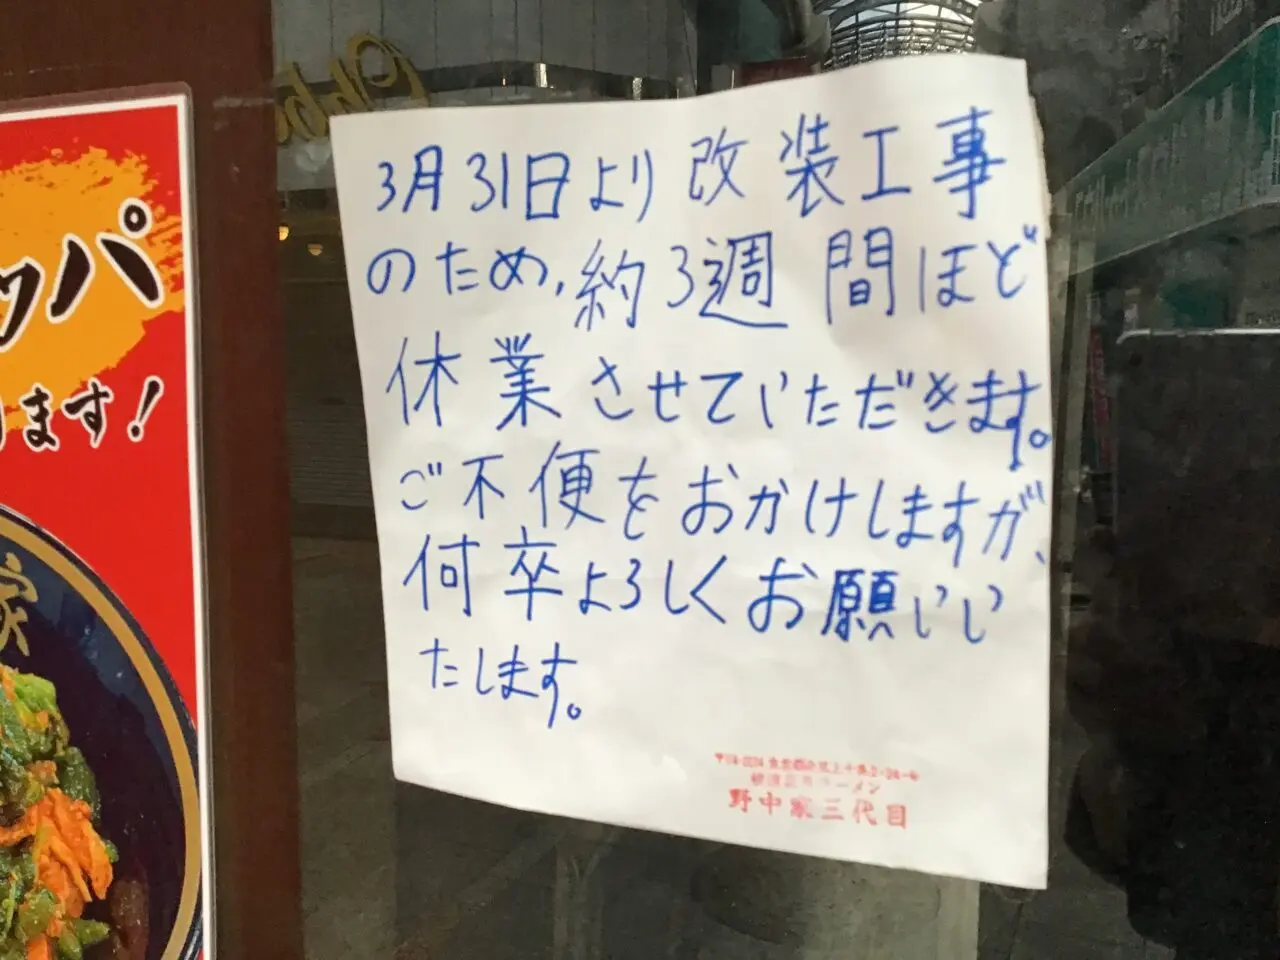 ッパ
ます!
家
3月31日より改装工事
のため、約3週間ほど
休業させていただきます。
ご不便をおかけしますが、
何卒よろしくお願いい
たします。
ラーメン
野中家三代目